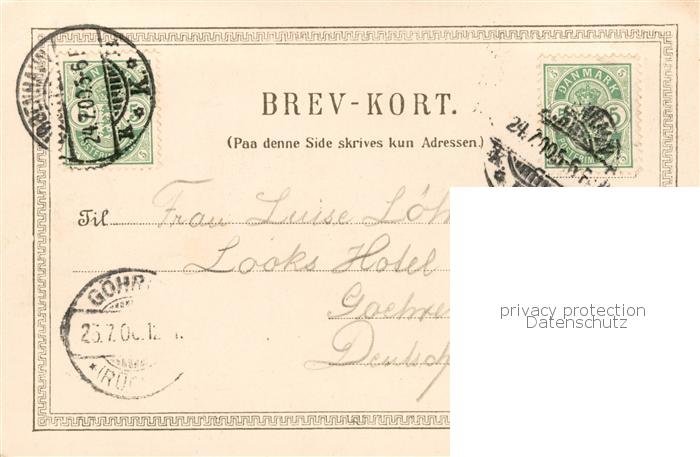 BREV-KORT.
(Paa denne Side skrives kun Adressen.)
DANMARK
24.7.00.5-6 E
K
K
24.7.00.5-6 E
Til Frau Luise Löh
Looks Hotel
Goehre
Deutsch
GÖHR
25.7.00.12
*(RÜG
privacy protection
Datenschutz